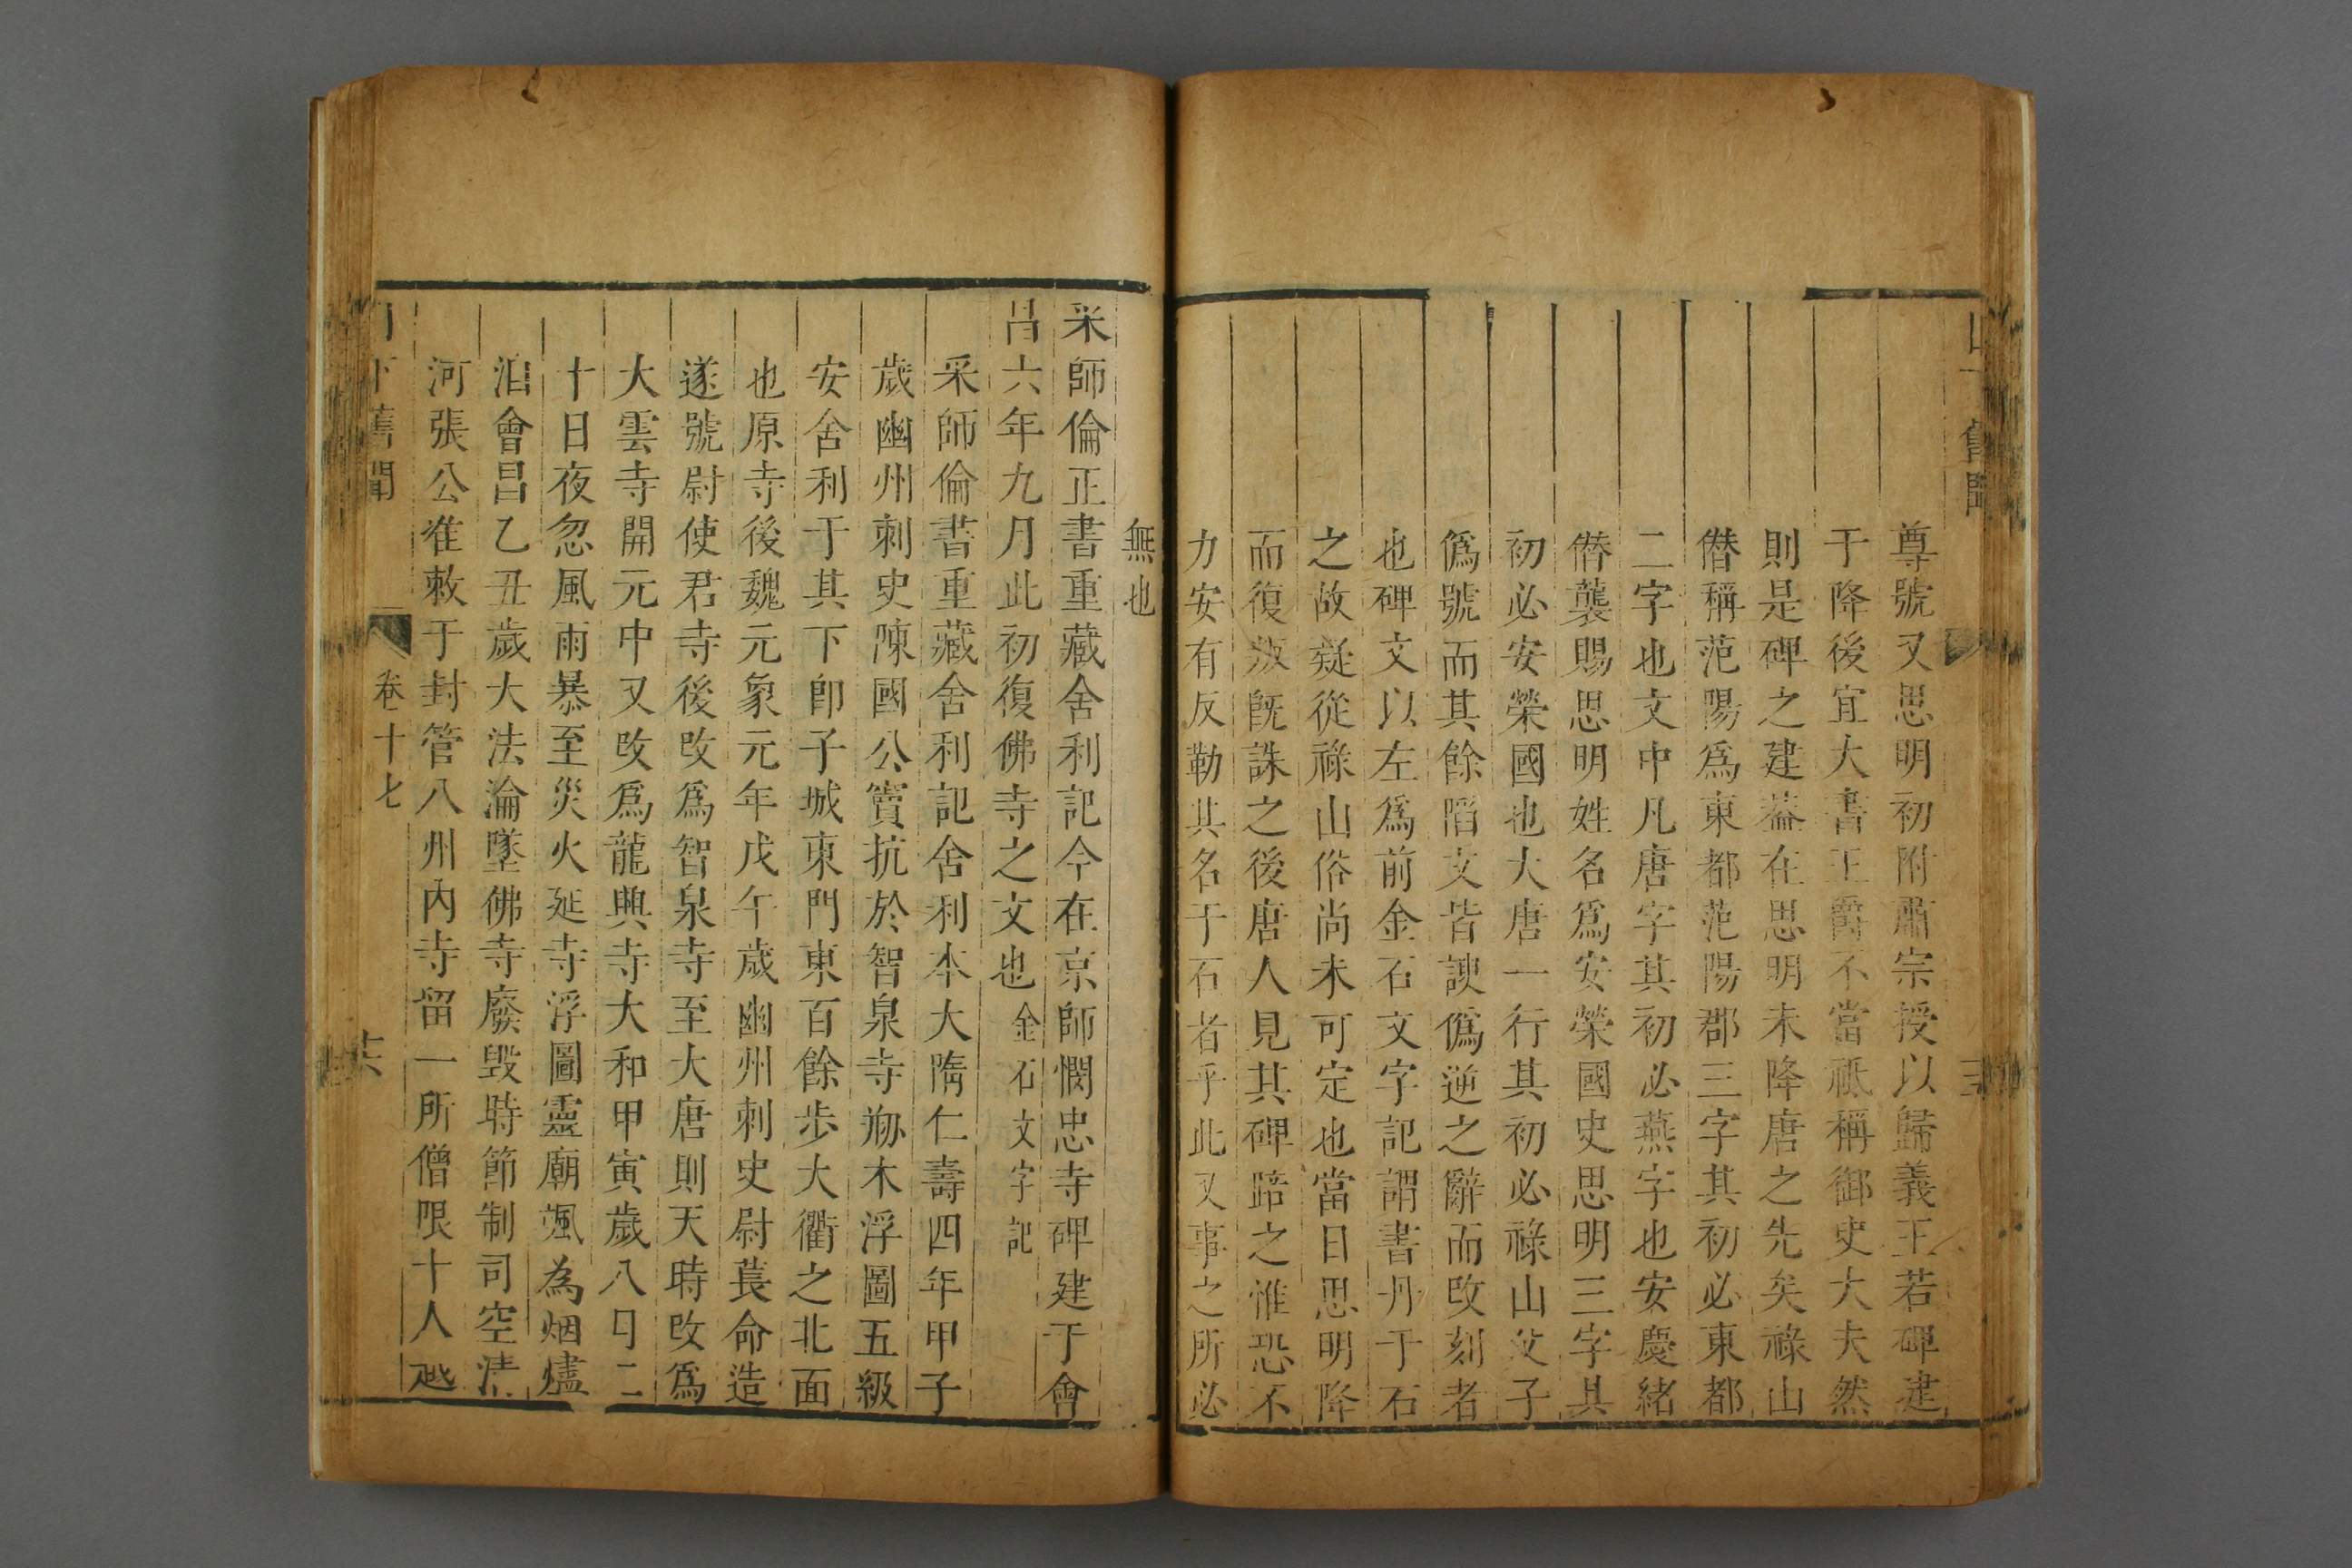 尊號又思明初附肅宗授以歸義王若碑建
于降後宜大書王爵不當祗稱御史大夫然
則是碑之建葢在思明未降唐之先矣祿山
僭稱范陽爲東都范陽郡三字其初必東都
二字也文中凡唐字其初必燕字也安慶緒
僭襲賜思明姓名爲安榮國史思明三字其
初必安榮國也大唐一行其初必祿山父子
僞號而其餘謟文皆諛僞逆之辭而改刻者
也碑文以左爲前金石文字記謂書丹于石
之故疑從祿山俗尚未可定也當日思明降
而復叛旣誅之後唐人見其碑踣之惟恐不
力安有反勒其名于石者乎此又事之所必
無也
采師倫正書重藏舍利記今在京師憫忠寺碑建于會
昌六年九月此初復佛寺之文也金石文字記
采師倫書重藏舍利記舍利本大隋仁壽四年甲子
歲幽州刺史陳國公竇抗於智泉寺剙木浮圖五級
安舍利于其下卽子城東門東百餘步大衢之北面
也原寺後魏元象元年戊午歲幽州刺史尉萇命造
遂號尉使君寺後改爲智泉寺至大唐則天時改爲
大雲寺開元中又改爲龍興寺大和甲寅歲八月二
十日夜忽風雨暴至災火延寺浮圖靈廟颯為烟燼
洎會昌乙丑歲大法淪墜佛寺廢毁時節制司空清
河張公准敕于封管八州內寺留一所僧限十人越
下舊聞
卷十七